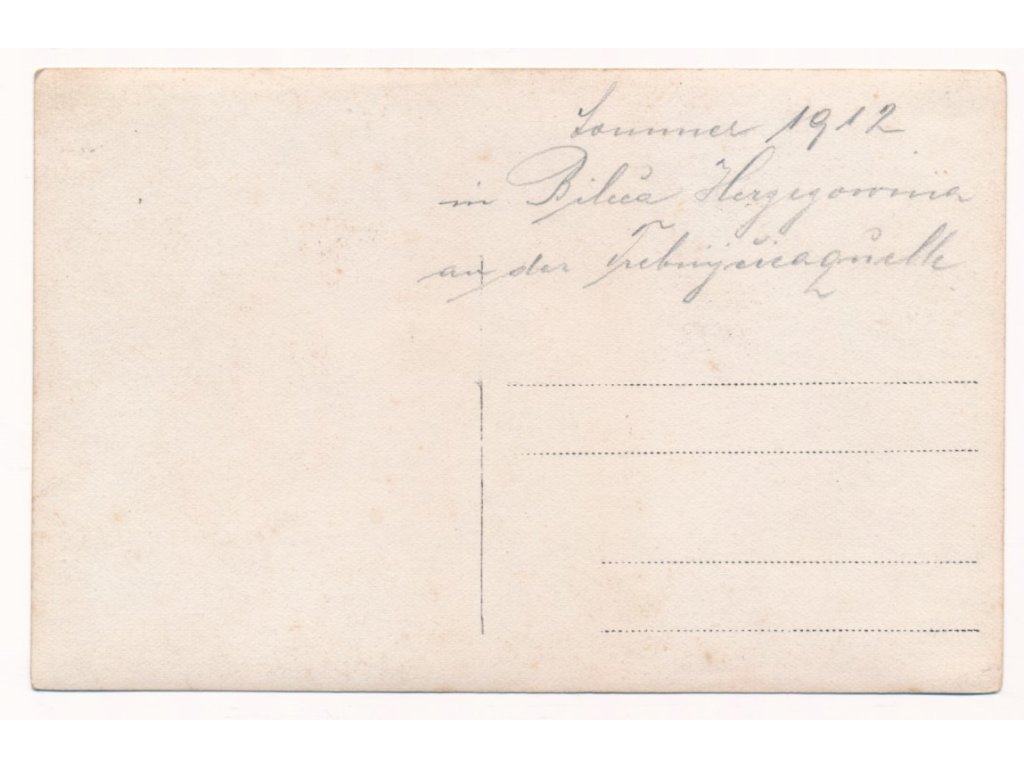 Sommer 1912
in Bileća Herzegowina
an der Trebinjčicaquelle